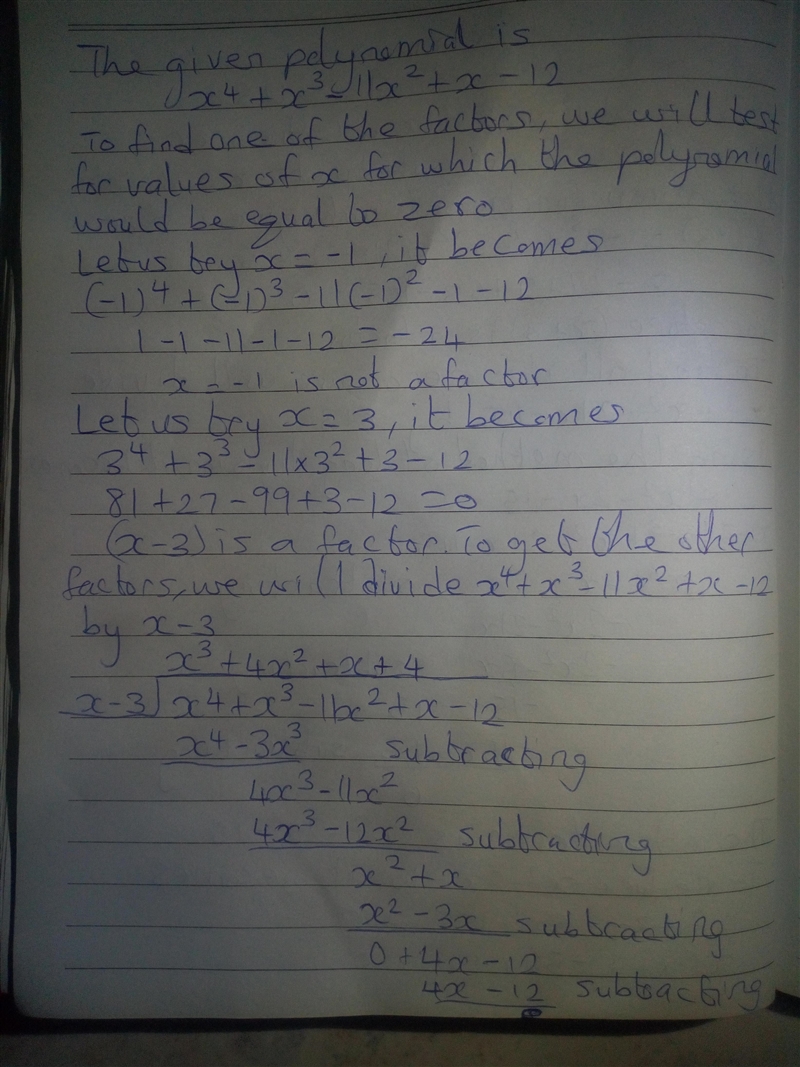 The given polynomial is
x⁴ + x³ - 11x² + x - 12
To find one of the factors, we will test
for values of x for which the polynomial
would be equal to zero
Let us try x = -1, it becomes
(-1)⁴ + (-1)³ - 11(-1)² - 1 - 12
1 - 1 - 11 - 1 - 12 = -24
x = -1 is not a factor
Let us try x = 3, it becomes
3⁴ + 3³ - 11×3² + 3 - 12
81 + 27 - 99 + 3 - 12 = 0
(x-3) is a factor. To get the other
factors, we will divide x⁴ + x³ - 11x² + x - 12
by x - 3
x³ + 4x² + x + 4
x-3) x⁴ + x³ - 11x² + x - 12
x⁴ - 3x³ subtracting
4x³ - 11x²
4x³ - 12x² subtracting
x² + x
x² - 3x subtracting
0 + 4x - 12
4x - 12 subtracting
0